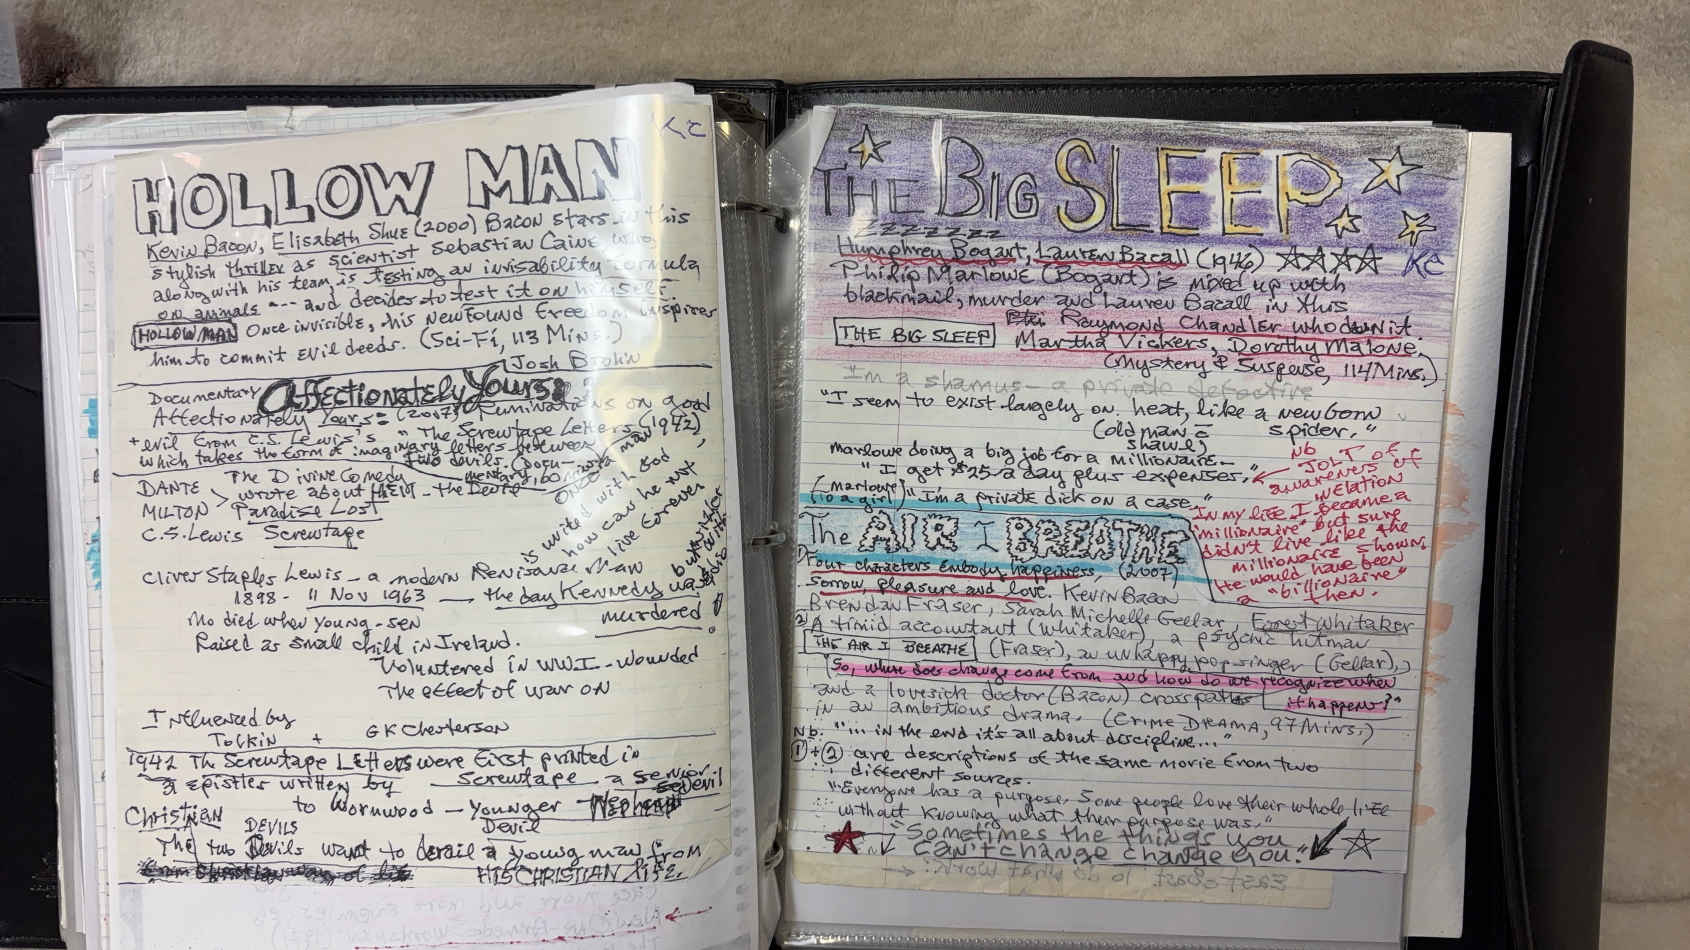 KC
HOLLOW MAN
Kevin Bacon, Elisabeth Shue (2000) Bacon stars in this
stylish thriller as scientist Sebastian Caine who
along with his team, is testing an invisability formula
on animals --- and decides to test it on himself.
HOLLOW MAN Once invisible, his newfound freedom inspires
him to commit evil deeds. (Sci-Fi, 113 Mins.)
Josh Brolin
Documentary Affectionately Yours:
Affectionately Yours: (2017) Ruminations on good
+ evil from C.S. Lewis's "The Screwtape Letters (1942)
which takes the form of imaginary letters between
two devils. (Docu-
mentary, 60 Mins)
The Divine Comedy
DANTE
wrote about them - the Devil
MILTON > Paradise Lost
C.S. Lewis Screwtape
once man
is united with God
how can he not
live forever
Cliver Staples Lewis - a modern Renisance Man
1898 - 11 Nov 1963 — the day Kennedy was
murdered!
Mo died when young - sen
Raised as small child in Ireland.
Voluntered in WWI - wounded
The effect of war on
Influenced by
Tolkin + GK Chesterson
1942 The Screwtape Letters were first printed in
epistles written by Screwtape a senior
devil
to Wormwood - Younger
Christian
DEVILS Devil
The two Devils want to derail a young man from
HIS CHRISTIAN life.
THE BIG SLEEP
ZZZZZZZZ
Humphrey Bogart, Lauren Bacall (1946) KC
Philip Marlowe (Bogart) is mixed up with
blackmail, murder and Lauren Bacall in this
Raymond Chandler whodunit.
THE BIG SLEEP Martha Vickers, Dorothy Malone.
(Mystery & Suspense, 114 Mins.)
I'm a shamus - a private detective
"I seem to exist largely on heat, like a new born
(old man c̄ spider."
shawl)
Marlowe doing a big job for a millionaire -
"I get $25 a day plus expenses."
(Marlowe
to a girl) "I'm a private dick on a case."
Nb
JOLT of c
awareness of
inflation
In my life I became a
"millionaire" but sure
didn't live like the
millionaire shown.
He would have been
a "billionaire"
then.
The AIR I BREATHE
① Four characters embody happiness, (2007)
sorrow, pleasure and love. Kevin Bacon
Brendan Fraser, Sarah Michelle Gellar, Forest Whitaker
② A timid accountant (Whitaker), a psychic hitman
THE AIR I BREATHE (Fraser), an unhappy pop singer (Gellar),
"So, where does change come from and how do we recognize when
it happens?"
and a lovesick doctor (Bacon) cross paths
in an ambitious drama. (Crime Drama, 97 Mins.)
Nb. "... in the end it's all about discipline..."
① + ② are descriptions of the same movie from two
different sources.
"Everyone has a purpose. Some people love their whole life
without knowing what their purpose was."
"Sometimes the things you
can't change change you."